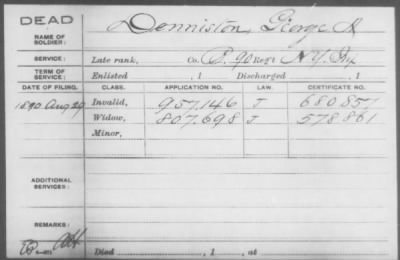 DEAD
Denniston, George A
NAME OF SOLDIER:
SERVICE: Late rank, Co. B. 90 Reg't N.Y. Inf
TERM OF SERVICE: Enlisted , 1 Discharged , 1
DATE OF FILING. CLASS. APPLICATION NO. LAW. CERTIFICATE NO.
1890 Aug 29 Invalid, 957.146 J 680857
Widow, 807.698 J 578861
Minor,
ADDITIONAL SERVICES:
REMARKS:
Died , 1 , at